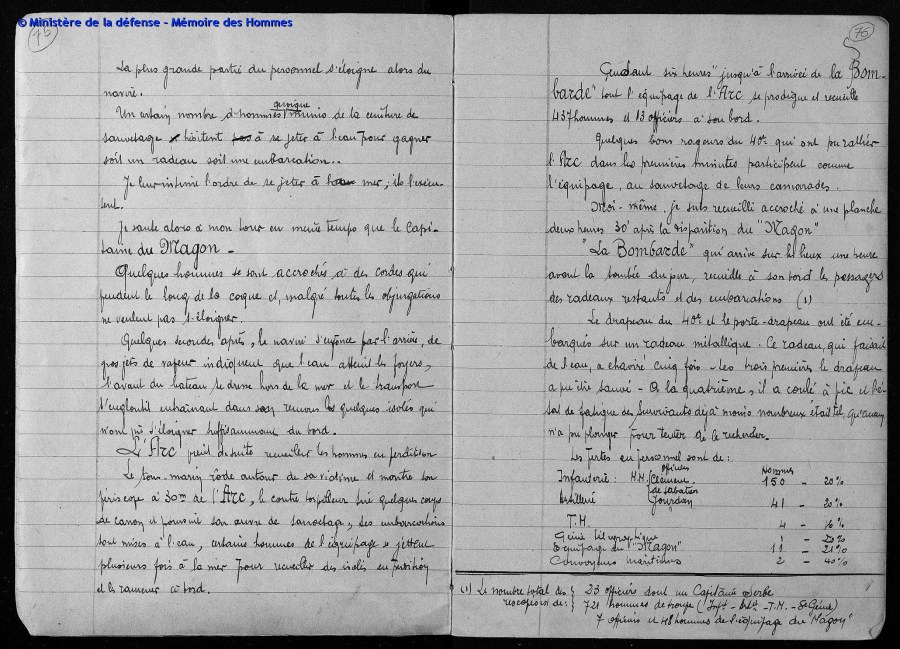 © Ministère de la défense - Mémoire des Hommes
La plus grande partie du personnel s'éloigne alors du
navire.
Un certain nombre d'hommes quoique munis de la ceinture de
sauvetage hésitent à se jeter à l'eau pour gagner
soit un radeau soit une embarcation..
Je leur intime l'ordre de se jeter à la mer ; ils l'exécu-
tent.
Je saute alors à mon tour en même temps que le Capi-
taine du Magon -
Quelques hommes se sont accroché à des cordes qui
pendent le long de la coque et, malgré toutes les objurgations
ne veulent pas s'éloigner.
Quelques secondes après, le navire s'enfonce par l'arrière, de
gros jets de vapeur indiquent que l'eau atteint les foyers,
l'avant du bateau se dresse hors de la mer et le transport
s'engloutit entraînant dans son remous les quelques isolés qui
n'ont pu s'éloigner suffisamment du bord.
L'Arc peut ensuite recueillir les hommes en perdition
Le sous-marin rôde autour de sa victime et montre son
périscope à 30m de l'Arc, le contre torpilleur tire quelques coups
de canon et poursuit son œuvre de sauvetage, ses embarcations
sont mises à l'eau, certains hommes de l'équipage se jettent
plusieurs fois à la mer pour recueillir des isolés en perdition
et les ramener à bord.
76
Pendant six heures jusqu'à l'arrivée de la "Bom-
barde" tout l'équipage de l'Arc se prodigue et recueille
437 hommes et 13 officiers à son bord.
Quelques bons nageurs du 40e qui ont pu rallier
l'Arc dans les premières minutes participent comme
l'équipage, au sauvetage de leurs camarades.
Moi-même, je suis recueilli accroché à une planche
deux heures 30' après la disparition du "Magon"
"La Bombarde" qui arrive sur les lieux une heure
avant la tombée du jour, recueille à son bord les passagers
des radeaux restants et des embarcations (1)
Le drapeau du 40e et le porte-drapeau ont été em-
barqués sur un radeau métallique. Ce radeau, qui faisait
de l'eau, a chaviré cinq fois - les trois premières le drapeau
a pu être sauvé - A la quatrième, il a coulé à pic, et l'é-
tat de fatigue des survivants déjà moins nombreux était tel, qu'aucun
n'a pu plonger pour tenter de le rechercher.
Les pertes en personnel sont de :
officiers Hommes
Infanterie : M.M. Clément 150 - 20%
de Sabatier
Artillerie Jourdan 41 - 20%
T.M. 4 - 16%
Génie télégraphique 1 - 20%
Equipage du "Magon" 11 - 21%
Convoyeurs maritimes 2 - 40%
(1) Le nombre total des rescapés est de : 23 officiers dont un Capitaine Serbe
721 hommes de troupe (Infie - Artie - T.M. - et Génie)
7 officiers et 48 hommes de l'équipage du "Magon"